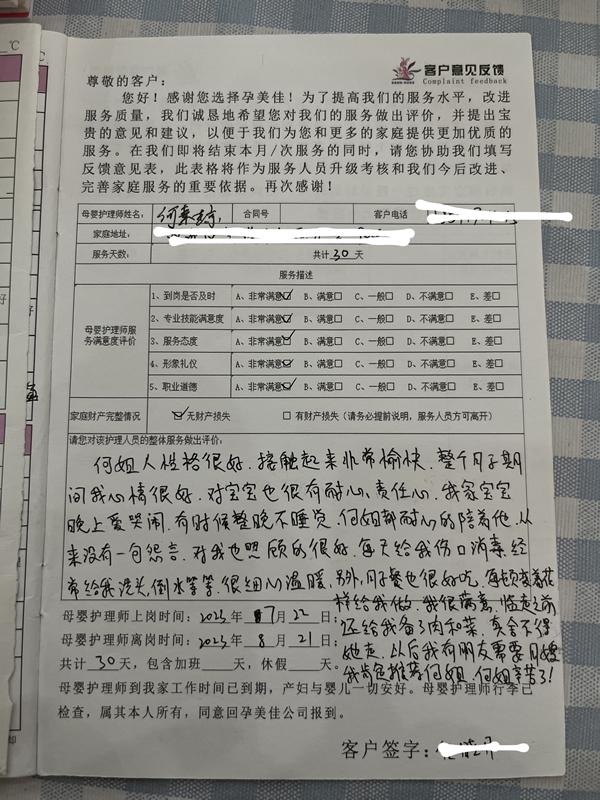 ℃
客户意见反馈
Complaint feedback
尊敬的客户：
您好！感谢您选择孕美佳！为了提高我们的服务水平，改进
服务质量，我们诚恳地希望您对我们的服务做出评价，并提出宝
贵的意见和建议，以便于我们为您和更多的家庭提供更加优质的
服务。在我们即将结束本月/次服务的同时，请您协助我们填写
反馈意见表，此表格将作为服务人员升级考核和我们今后改进、
完善家庭服务的重要依据。再次感谢！
母婴护理师姓名： 何 合同号 客户电话
家庭地址：
服务天数： 共计30天
服务描述
母婴护理师服务满意度评价
1、到岗是否及时 A、非常满意☑ B、满意□ C、一般□ D、不满意□ E、差□
2、专业技能满意度 A、非常满意☑ B、满意□ C、一般□ D、不满意□ E、差□
3、服务态度 A、非常满意☑ B、满意□ C、一般□ D、不满意□ E、差□
4、形象礼仪 A、非常满意☑ B、满意□ C、一般□ D、不满意□ E、差□
5、职业道德 A、非常满意☑ B、满意□ C、一般□ D、不满意□ E、差□
家庭财产完整情况 ☑无财产损失 □有财产损失（请务必提前说明，服务人员方可离开）
请您对该护理人员的整体服务做出评价：
何姐人性格很好，接触起来非常愉快，整个月子期
间我心情很好，对宝宝也很有耐心、责任心，我家宝宝
晚上爱哭闹，有时候整晚不睡觉，何姐都耐心的陪着他，从
来没有一句怨言，对我也照顾的很好，每天给我伤口消毒，经
常给我洗头，倒水等等，很细心温暖，另外，月子餐也很好吃，每顿变着花
样给我做，我很满意，临走之前
还给我备了肉和菜，真舍不得
她走，以后我有朋友需要月嫂
我肯定推荐何姐，何姐辛苦了！
母婴护理师上岗时间：2023年7月22日；
母婴护理师离岗时间：2023年8月21日；
共计30天，包含加班 天，休假 天。
母婴护理师到我家工作时间已到期，产妇与婴儿一切安好。母婴护理师行李已
检查，属其本人所有，同意回孕美佳公司报到。
客户签字：